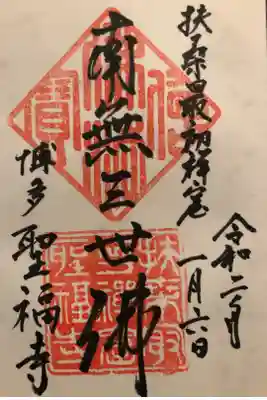 扶桑最初禅窟
南無三世佛
博多
聖福寺
令和二年
一月六日